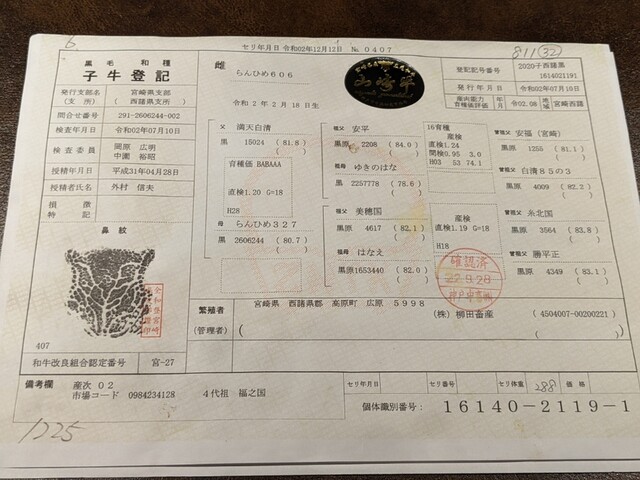 6
セリ年月日 令和02年12月12日 No 0407
811(32)
黒毛和種
子牛登記
雌
らんひめ606
令和 2年 2月18日生
登記記号番号
2020子西諸黒
1614021191
発行年月日 令和02年07月10日
産肉能力
育種価評価
年月 令02.08 地域 宮崎西諸
発行支部名
(支所)
宮崎県支部
(西諸県支所)
問合せ番号 291-2606244-002
検査年月日 令和02年07月10日
検査委員
岡原 広明
中園 裕昭
授精年月日 平成31年04月28日
授精者氏名 外村 信夫
損徴
特記
鼻紋
407
和牛改良組合認定番号 宮-27
父 満天白清
黒 15024 (81.8)
育種価 BABAAA
直検1.20 G=18
H28
母 らんひめ327
黒 2606244 (80.7)
祖父 安平
黒原 2208 (84.0)
祖母 ゆきのはな
黒 2257778 (78.6)
祖父 美穂国
黒原 4617 (82.1)
祖母 はなえ
黒原1653440 (82.0)
16育種
産検
直検1.24
間検0.95 3.0
H03 53 74.1
産検
直検1.19 G=18
H18
曽祖父 安福(宮崎)
黒原 1255 (81.1)
曽祖父 白清85の3
黒原 4009 (82.2)
曽祖父 糸北国
黒原 3564 (83.8)
曽祖父 勝平正
黒原 4349 (83.1)
確認済
繁殖者
(管理者)
宮崎県 西諸県郡 高原町 広原 5998
(株) 柳田畜産 (4504007-00200221)
備考欄
産次 02
市場コード 0984234128
4代祖 福之国
セリ年月日
セリ番号
セリ体重 288
価格
個体識別番号: 16140-2119-1
1225